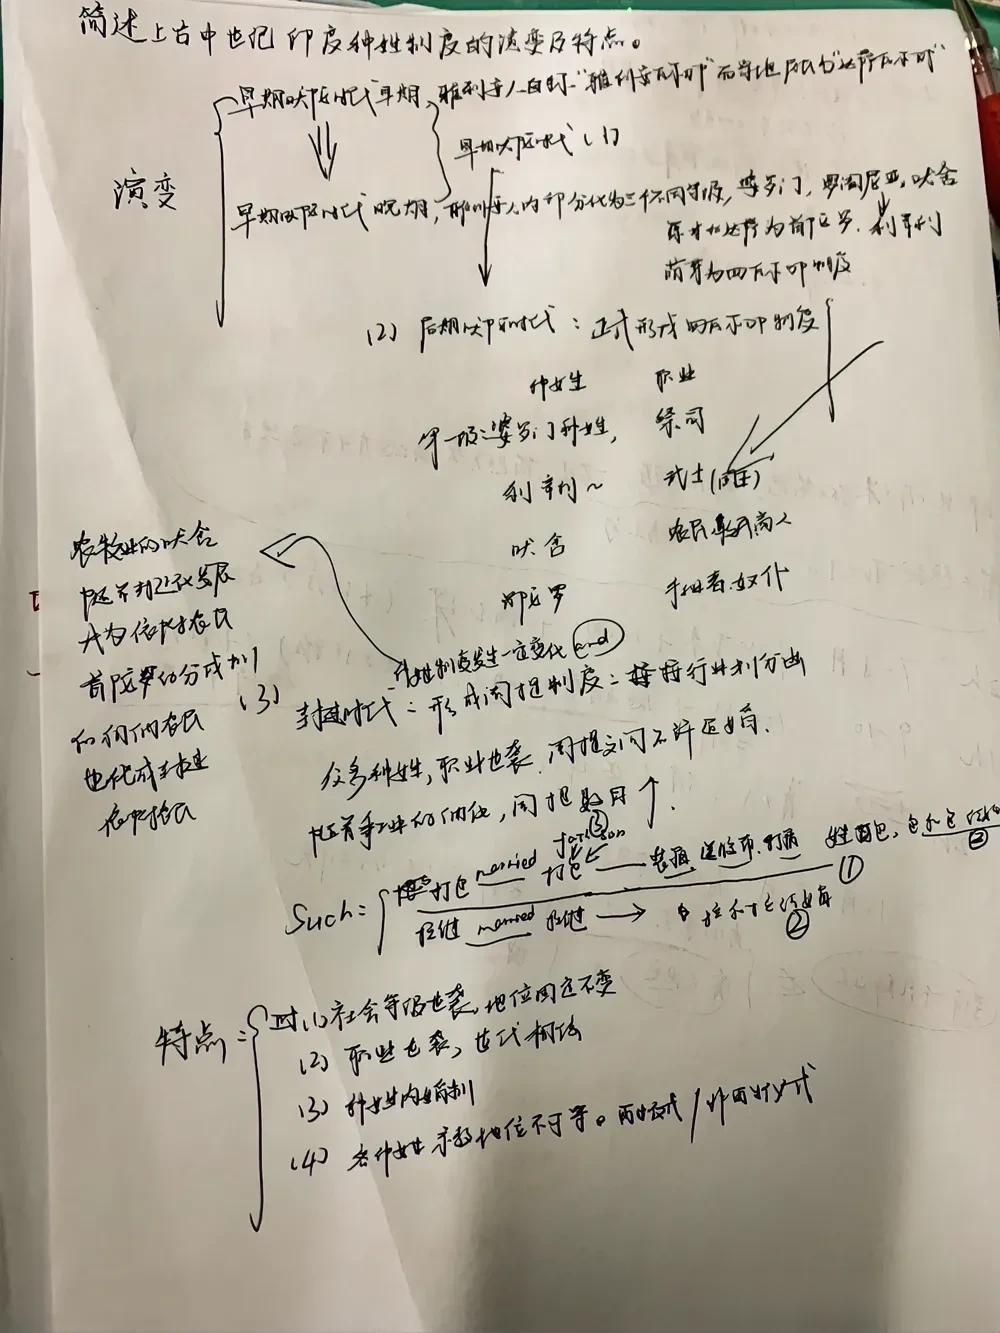 简述上古中世纪印度种姓制度的演变及特点。
演变
早期吠陀时代早期，雅利安人自称“雅利安瓦尔那”而当地居民为“达萨瓦尔那”
早期吠陀时代（1）
早期吠陀时代晚期，雅利安人内部分化为三个不同等级，婆罗门，罗阇尼亚，吠舍
原来的达萨为首陀罗. 刹帝利
萌芽为四瓦尔那制度
（2）后期吠陀时代：正式形成四瓦尔那制度
种姓 职业
第一级：婆罗门种姓， 祭司
刹帝利～ 武士（国王）
吠舍 农民 商人
首陀罗 奴仆
农牧业的吠舍
随着封建化发展
成为依附农民
首陀罗的分成制
和佃农民
也化成封建
依附农民
种姓制度发生一定变化 end
（3）封建时代：形成阇提制度：按行业划分出
众多种姓，职业世袭，阇提之间不许通婚.
随着手工业的细化，阇提数目↑.
Such：
打包 married 打包
③
①
②
married
②
特点：
（1）社会等级世袭，地位固定不变
（2）职业世袭，世代相传
（3）种姓内婚制
（4）各种姓 地位不平等。